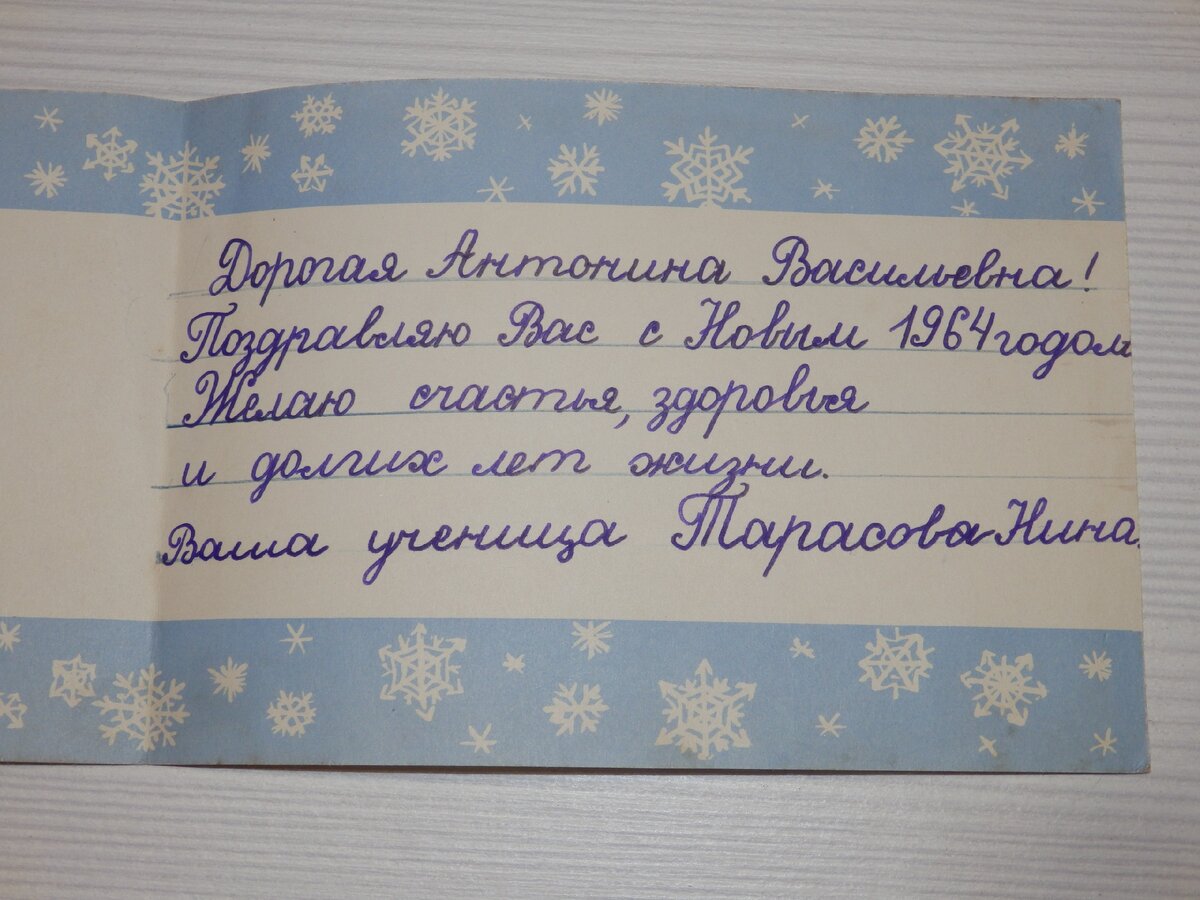 Дорогая Антонина Васильевна!
Поздравляю Вас с Новым 1964 годом
Желаю счастья, здоровья
и долгих лет жизни.
Ваша ученица Тарасова Нина.